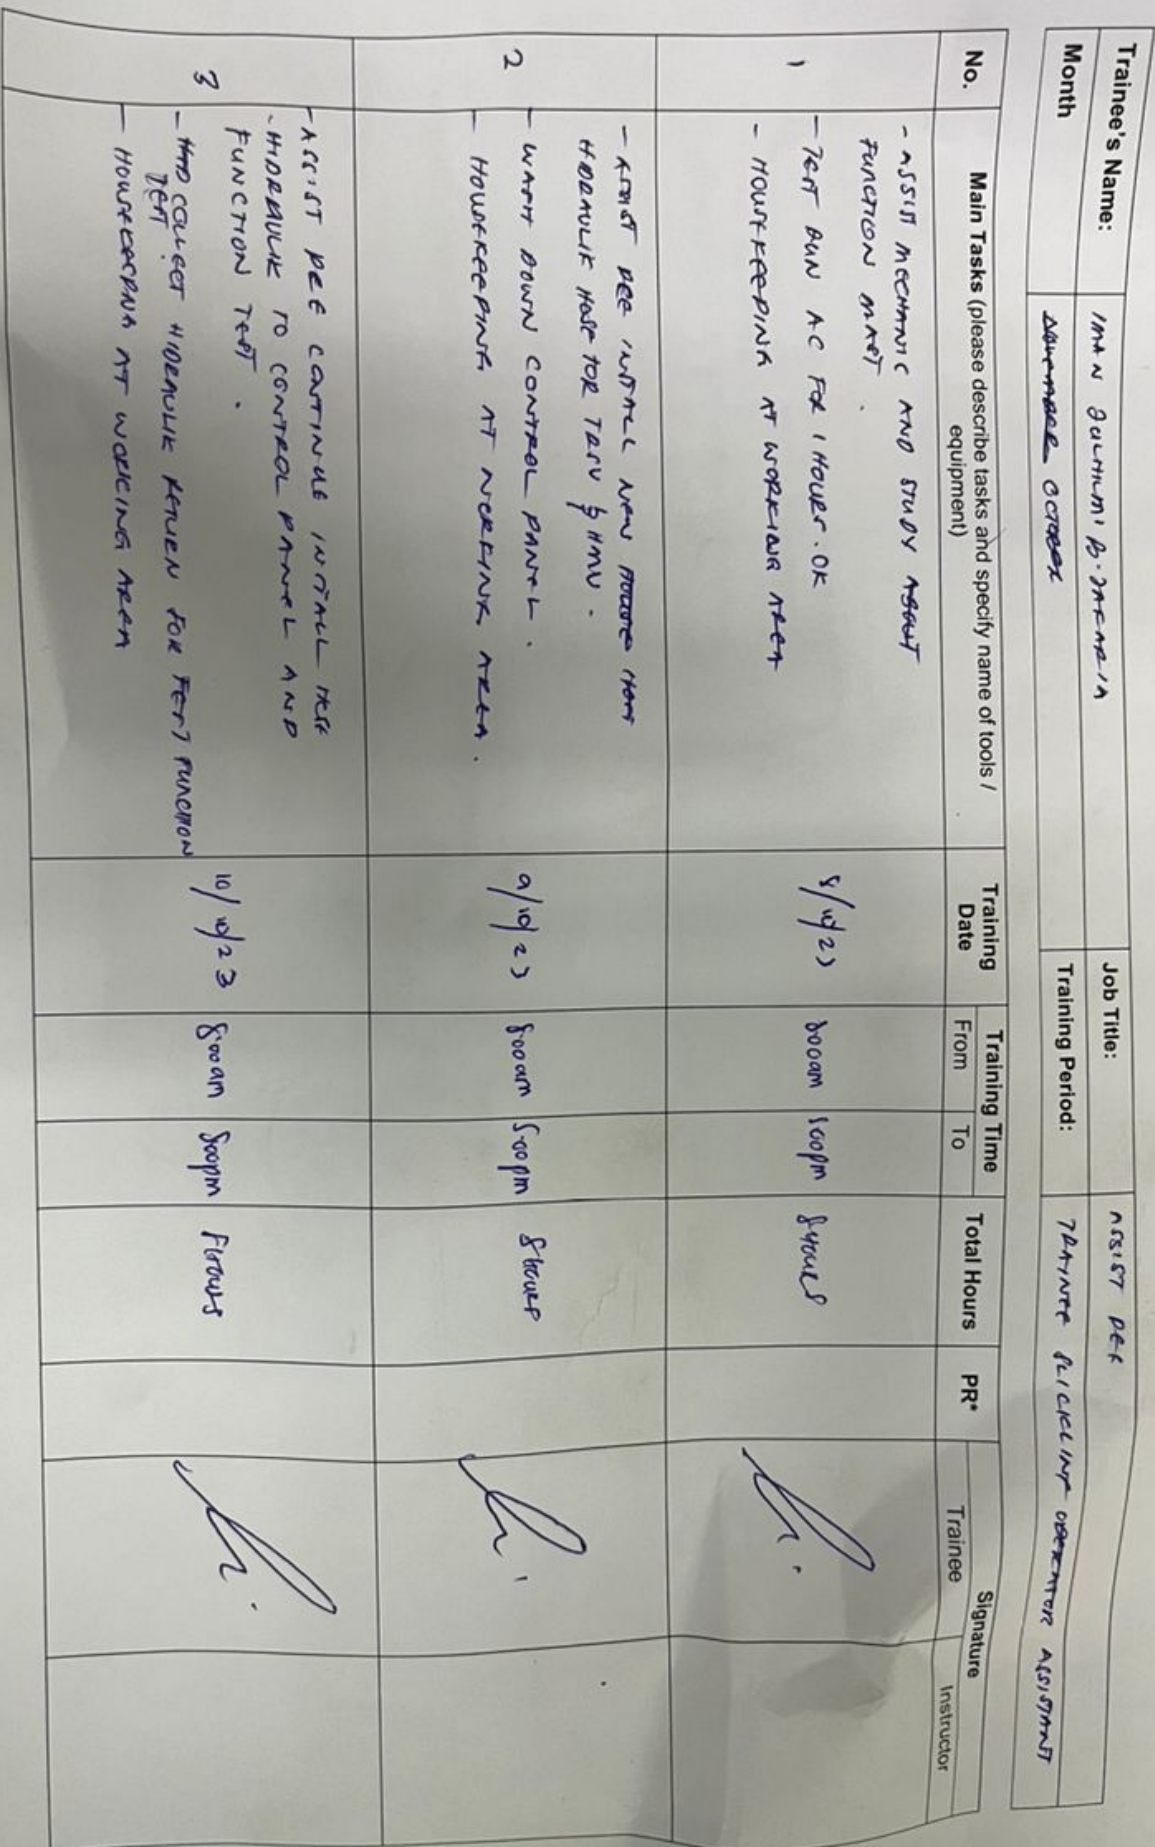 Trainee's Name: IMAN ZULHILMI B. ZAKARIA Job Title: ASSIST DEE
Month OCTOBER Training Period: TRAINEE SLICKLINE OPERATOR ASSISTANT
No. Main Tasks (please describe tasks and specify name of tools / equipment) Training Date Training Time From To Total Hours PR* Signature Trainee Instructor
1
- ASSIST MECHANIC AND STUDY ABOUT
FUNCTION MAST.
- TEST RUN AC FOR 1 HOURS. OK
- HOUSEKEEPING AT WORKING AREA
8/10/23 800am 500pm 8 HOURS
2
- ASSIST DEE INSTALL NEW HOSE
HIDRAULIK HOSE FOR TRSV & HMV.
- WASH DOWN CONTROL PANEL.
- HOUSEKEEPING AT WORKING AREA.
9/10/23 8:00am 5:00pm 8 HOURS
3
- ASSIST DEE CONTINUE INSTALL HOSE
- HIDRAULIK TO CONTROL PANEL AND
FUNCTION TEST.
- COLLECT HIDRAULIK RETURN FOR FUNCTION
TEST
- HOUSEKEEPING AT WORKING AREA
10/10/23 8:00am 500pm HOURS